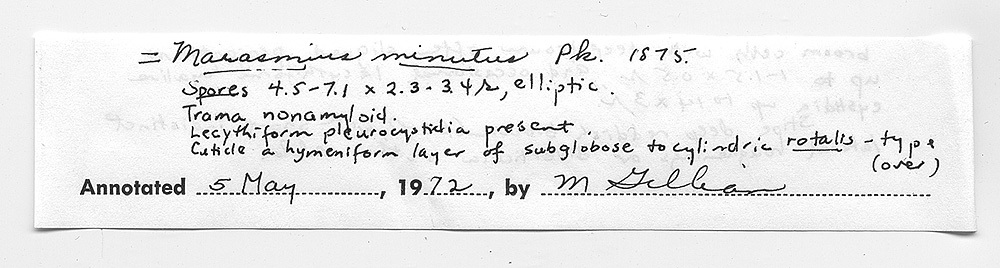 = Marasmius minutus Pk. 1875.
Spores 4.5-7.1 x 2.3-3.4 μ, elliptic.
Trama nonamyloid.
Lecythiform pleurocystidia present
Cuticle a hymeniform layer of subglobose to cylindric rotalis-type
(over)
Annotated 5 May, 1972, by M Gilliam